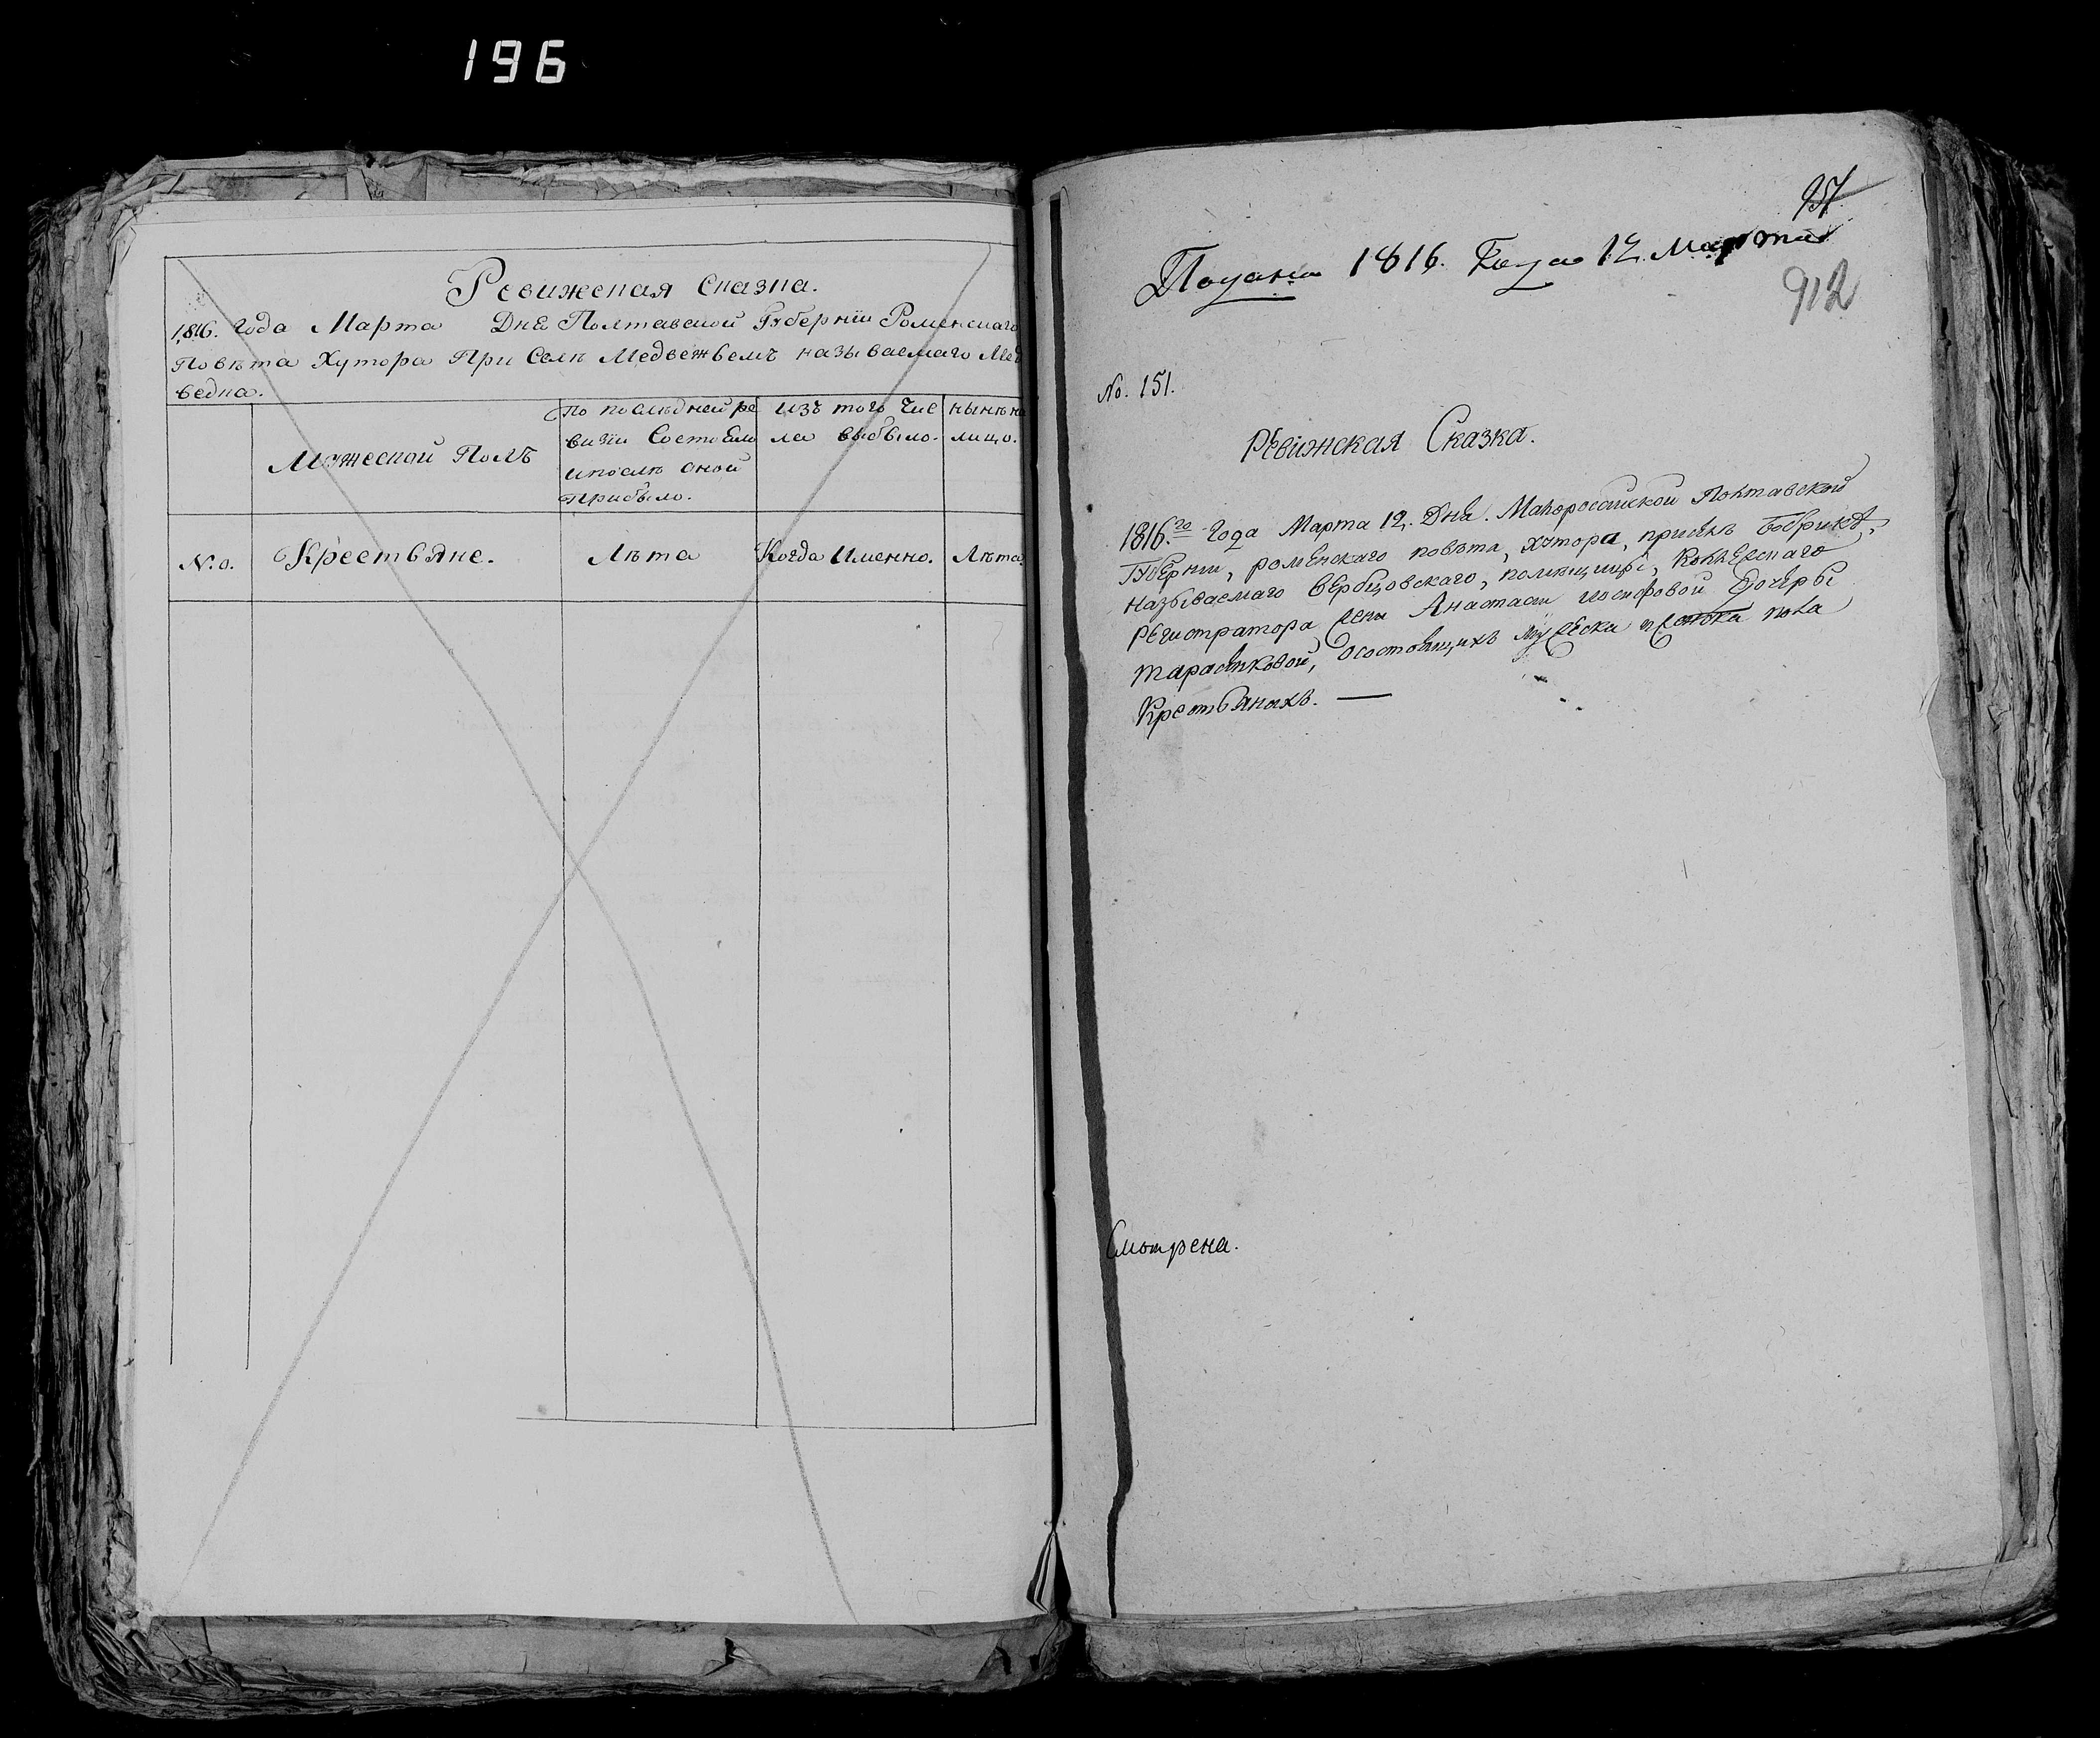 196
Ревижская Сказка.
1816. Года Марта Дня Полтавской Губернїи Роменскаго
Повѣта Хутора При Селѣ Медвежьемъ называемаго Мед
ведка.
Мужеской Полъ
По послѣдней ре
визїи Состояло
и послѣ оной
Прибыло.
изъ того Чис
ла выбыло.
нынѣ на
лицо.
N.o. Крестьяне. Лѣта Когда Именно. Лѣта.
957
Подана 1816. Года 12. Марта
912
No. 151.
Ревижская Сказка.
1816.го Года Марта 12. Дня. Малороссійской Полтавской
Губерніи, роменскаго повѣта, хутора, присѣлѣ Бобрикѣ,
называемаго Вербцовскаго, помѣщицы, Колѣжскаго
Регистратора жены Анастасіи Иосифовой Дочеры
Тарасѣнковой, осостоящихъ мужеска и женска пола
Крестьянахъ. —
Смотрена.